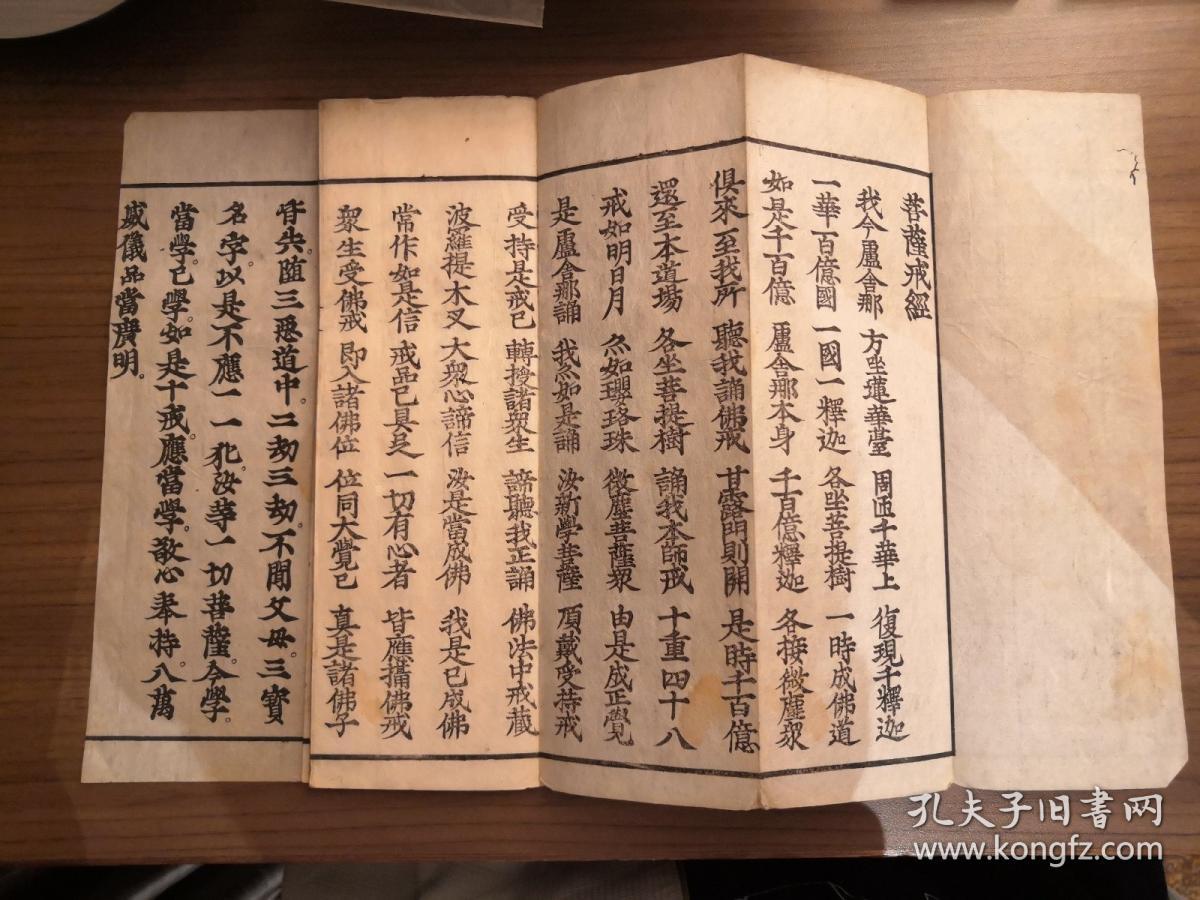 菩薩戒經
我今盧舍那 方坐蓮華臺 周匝千華上 復現千釋迦
一華百億國 一國一釋迦 各坐菩提樹 一時成佛道
如是千百億 盧舍那本身 千百億釋迦 各接微塵衆
俱來至我所 聽我誦佛戒 甘露門則開 是時千百億
還至本道場 各坐菩提樹 誦我本師戒 十重四十八
戒如明日月 亦如瓔珞珠 微塵菩薩衆 由是成正覺
是盧舍那誦 我亦如是誦 汝新學菩薩 頂戴受持戒
受持是戒已 轉授諸衆生 諦聽我正誦 佛法中戒藏
波羅提木叉 大衆心諦信 汝是當成佛 我是已成佛
常作如是信 戒品已具足 一切有心者 皆應攝佛戒
衆生受佛戒 即入諸佛位 位同大覺已 真是諸佛子
皆失。随三惡道中。二劫三劫。不聞父母。三寳
名字。以是不應一一犯。汝等一切菩薩。今學。
當學。已學。如是十戒。應當學。敬心奉持。八萬
威儀品當廣明。
孔夫子旧书网
www.kongfz.com